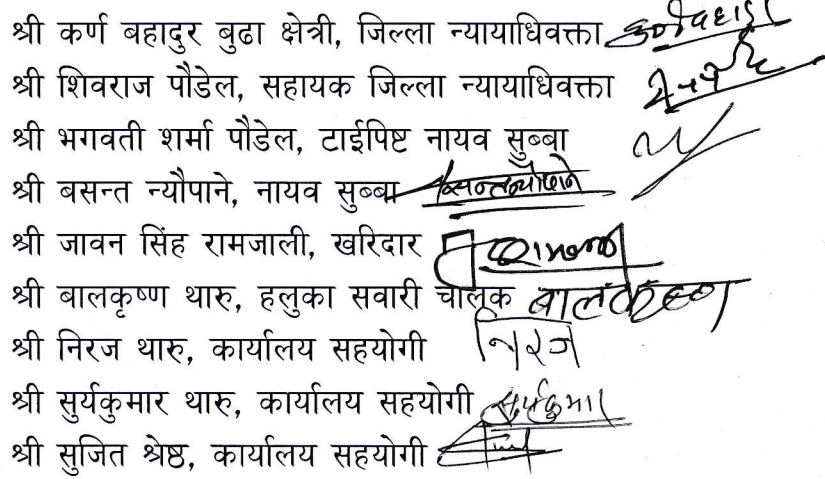 श्री कर्ण बहादुर बुढा क्षेत्री, जिल्ला न्यायाधिवक्ता
श्री शिवराज पौडेल, सहायक जिल्ला न्यायाधिवक्ता
श्री भगवती शर्मा पौडेल, टाईपिष्ट नायव सुब्बा
श्री बसन्त न्यौपाने, नायव सुब्बा बसन्तन्यौपाने
श्री जावन सिंह रामजाली, खरिदार
श्री बालकृष्ण थारु, हलुका सवारी चालक बालकृष्ण
श्री निरज थारु, कार्यालय सहयोगी निरज
श्री सुर्यकुमार थारु, कार्यालय सहयोगी सुर्यकुमार
श्री सुजित श्रेष्ठ, कार्यालय सहयोगी